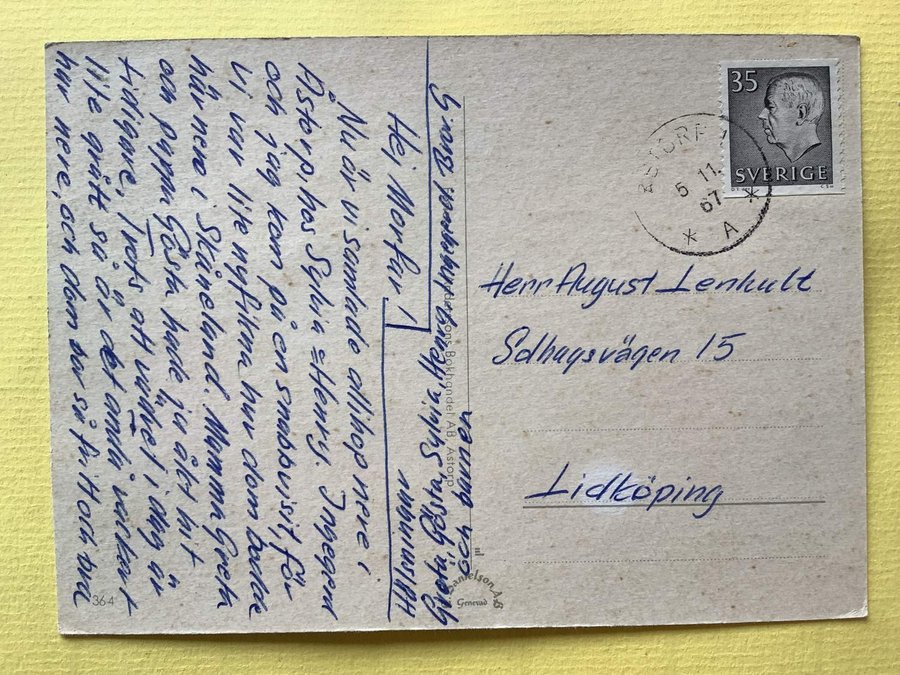 35
SVERIGE
ÅSTORP 1
5 11.
67
* A *
Herr August Lenhult
Solhagsvägen 15
Lidköping
Hej Morfar!
Nu är vi samlade allihop nere i
Åstorp, hos Sylvia = Henry. Ingegerd
och jag kom på en snabbvisit, för
vi var lite nyfikna hur dom bodde
här nere i Skåneland. Mamma Greta
och pappa Gösta hade ju åkt hit
tidigare. Trots att vädret i dag är
lite grått så är det ändå vackert
här nere, och dom bor så fritt och bra
Greta Gösta Sylvia Henry
och
Bokhandel AB, Åstorp
Danielson AB
Genevad
364